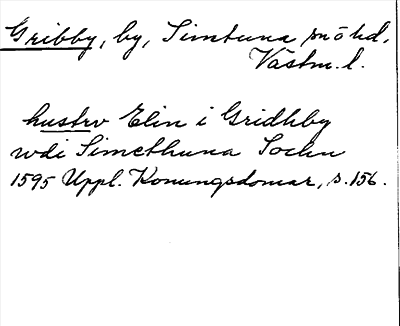 Gribby, by, Simtuna snöhd,
Västm. l.
hustrv Elin i Gridhby
wdi Simethuna Sochn
1595 Uppl. Konungsdomar, s. 156.